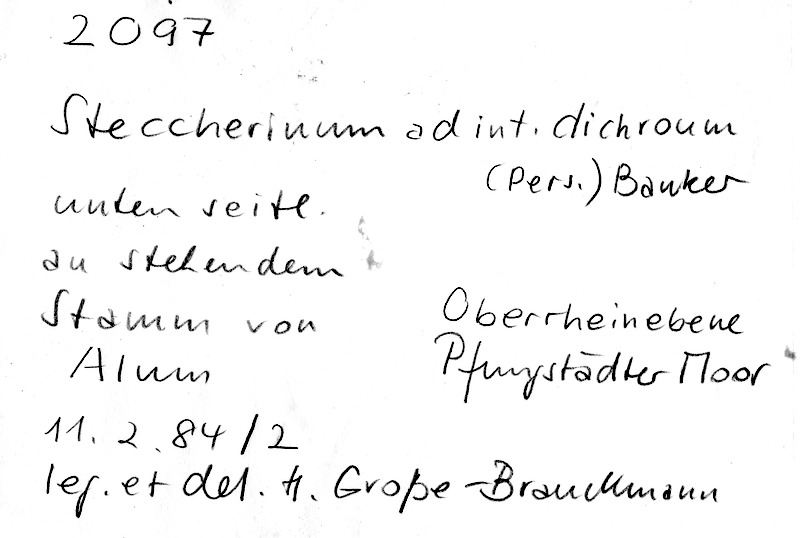 2097
Steccherinum ad int. dichroum
(Pers.) Banker
unten seitl.
an stehendem
Stamm von
Alum
Oberrheinebene
Pfungstädter Moor
11. 2. 84/2
leg. et det. H. Große-Brauckmann